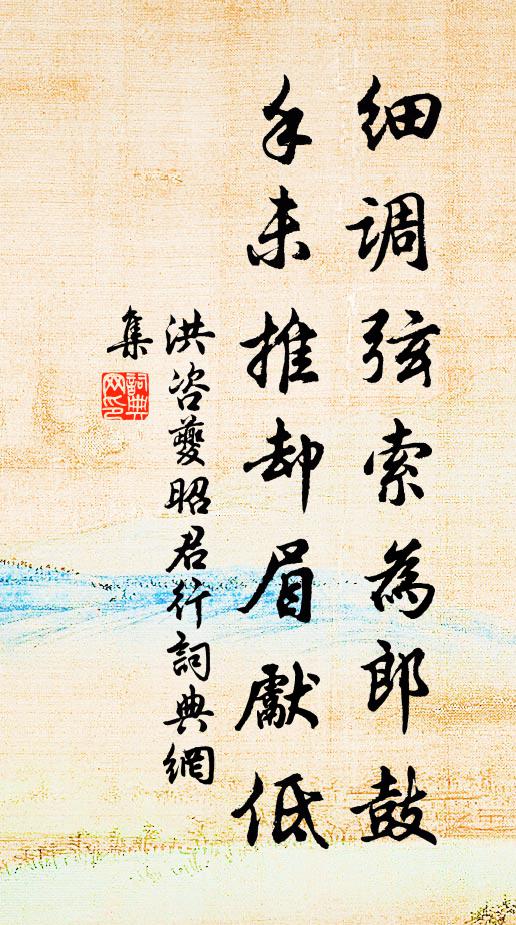 细调弦索為郎鼓
手未推却眉獻低
洪咨夔昭君行詞典網
集
詞典网印